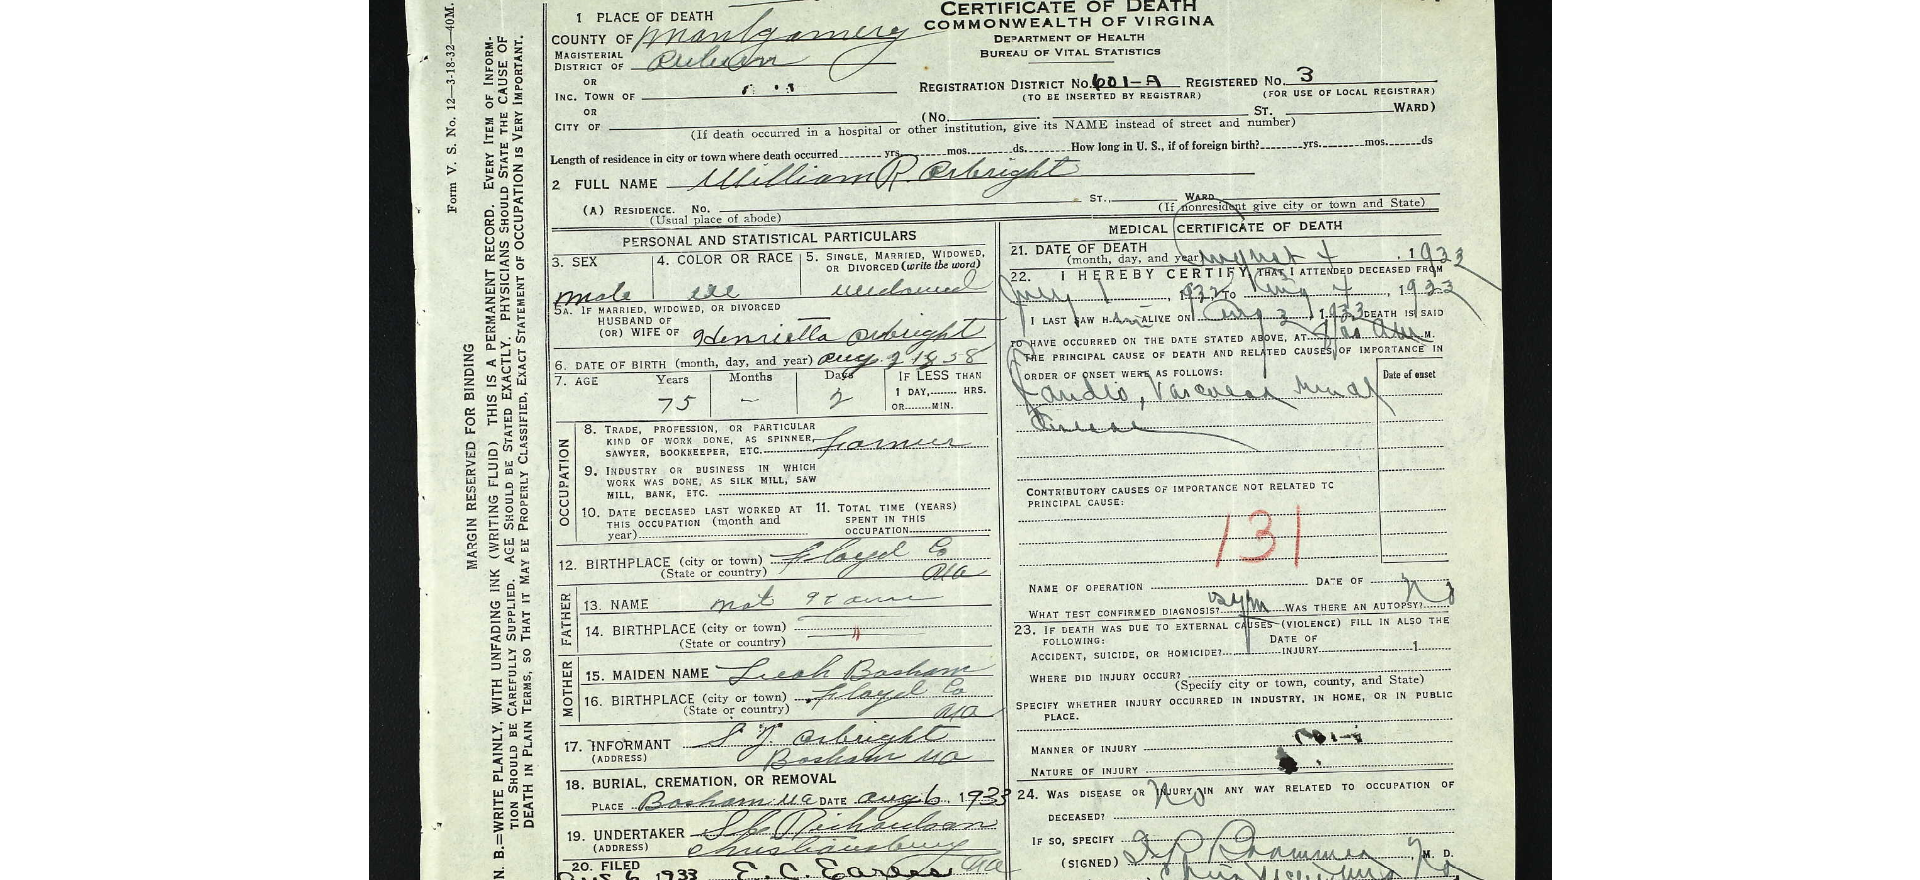 Certificate of Death
COMMONWEALTH OF VIRGINA
DEPARTMENT OF HEALTH
BUREAU OF VITAL STATISTICS
1 PLACE OF DEATH
COUNTY OF Montgomery
MAGISTERIAL DISTRICT OF Auburn
OR
INC. TOWN OF
OR
CITY OF
REGISTRATION DISTRICT No. 601-A REGISTERED No. 3
(TO BE INSERTED BY REGISTRAR) (FOR USE OF LOCAL REGISTRAR)
(No. ST. WARD)
(If death occurred in a hospital or other institution, give its NAME instead of street and number)
Length of residence in city or town where death occurred yrs. mos. ds. How long in U. S., if of foreign birth? yrs. mos. ds
2 FULL NAME William R. Orbright
(A) RESIDENCE. No. ST., WARD
(Usual place of abode) (If nonresident give city or town and State)
PERSONAL AND STATISTICAL PARTICULARS
3. SEX
male
4. COLOR OR RACE
5. SINGLE, MARRIED, WIDOWED, OR DIVORCED (write the word)
widowed
5A. IF MARRIED, WIDOWED, OR DIVORCED
HUSBAND OF
(OR) WIFE OF Henrietta Orbright
6. DATE OF BIRTH (month, day, and year) Aug. 2 1858
7. AGE Years Months Days IF LESS THAN
1 DAY, HRS.
OR MIN.
75 - 2
OCCUPATION
8. TRADE, PROFESSION, OR PARTICULAR
KIND OF WORK DONE, AS SPINNER,
SAWYER, BOOKKEEPER, ETC. Farmer
9. INDUSTRY OR BUSINESS IN WHICH
WORK WAS DONE, AS SILK MILL, SAW
MILL, BANK, ETC.
10. DATE DECEASED LAST WORKED AT
THIS OCCUPATION (month and
year)
11. TOTAL TIME (YEARS)
SPENT IN THIS
OCCUPATION
12. BIRTHPLACE (city or town) Floyd Co
(State or country) Va
FATHER
13. NAME not
14. BIRTHPLACE (city or town)
(State or country) "
MOTHER
15. MAIDEN NAME Leah Basham
16. BIRTHPLACE (city or town) Floyd Co
(State or country) Va
17. INFORMANT Orbright
(ADDRESS) Basham Va
18. BURIAL, CREMATION, OR REMOVAL
PLACE Basham Va DATE Aug 6, 1933
19. UNDERTAKER Richardson
(ADDRESS) Christiansburg Va
20. FILED
Aug 6 1933 E. C.
MEDICAL CERTIFICATE OF DEATH
21. DATE OF DEATH
(month, day, and year) August 4, 1933
22. I HEREBY CERTIFY, THAT I ATTENDED DECEASED FROM
July 1, 1932, TO Aug 4, 1933
I LAST SAW H im ALIVE ON Aug 3, 1933 DEATH IS SAID
TO HAVE OCCURRED ON THE DATE STATED ABOVE, AT M.
THE PRINCIPAL CAUSE OF DEATH AND RELATED CAUSES OF IMPORTANCE IN
ORDER OF ONSET WERE AS FOLLOWS:
Date of onset
Cardio, Vascular renal
disease
CONTRIBUTORY CAUSES OF IMPORTANCE NOT RELATED TO
PRINCIPAL CAUSE:
131
NAME OF OPERATION DATE OF
WHAT TEST CONFIRMED DIAGNOSIS? Sym WAS THERE AN AUTOPSY? No
23. IF DEATH WAS DUE TO EXTERNAL CAUSES (VIOLENCE) FILL IN ALSO THE
FOLLOWING:
ACCIDENT, SUICIDE, OR HOMICIDE? DATE OF INJURY 1
WHERE DID INJURY OCCUR?
(Specify city or town, county, and State)
SPECIFY WHETHER INJURY OCCURRED IN INDUSTRY, IN HOME, OR IN PUBLIC
PLACE.
MANNER OF INJURY
NATURE OF INJURY
24. WAS DISEASE OR INJURY IN ANY WAY RELATED TO OCCUPATION OF
DECEASED? No
IF SO, SPECIFY
(SIGNED) M. D.
Form V. S. No. 12—3-18-32—40M.
MARGIN RESERVED FOR BINDING
N. B.—WRITE PLAINLY, WITH UNFADING INK (WRITING FLUID) THIS IS A PERMANENT RECORD. EVERY ITEM OF INFORM-
ATION SHOULD BE CAREFULLY SUPPLIED. AGE SHOULD BE STATED EXACTLY. PHYSICIANS SHOULD STATE THE CAUSE OF
DEATH IN PLAIN TERMS, SO THAT IT MAY BE PROPERLY CLASSIFIED, EXACT STATEMENT OF OCCUPATION IS VERY IMPORTANT.